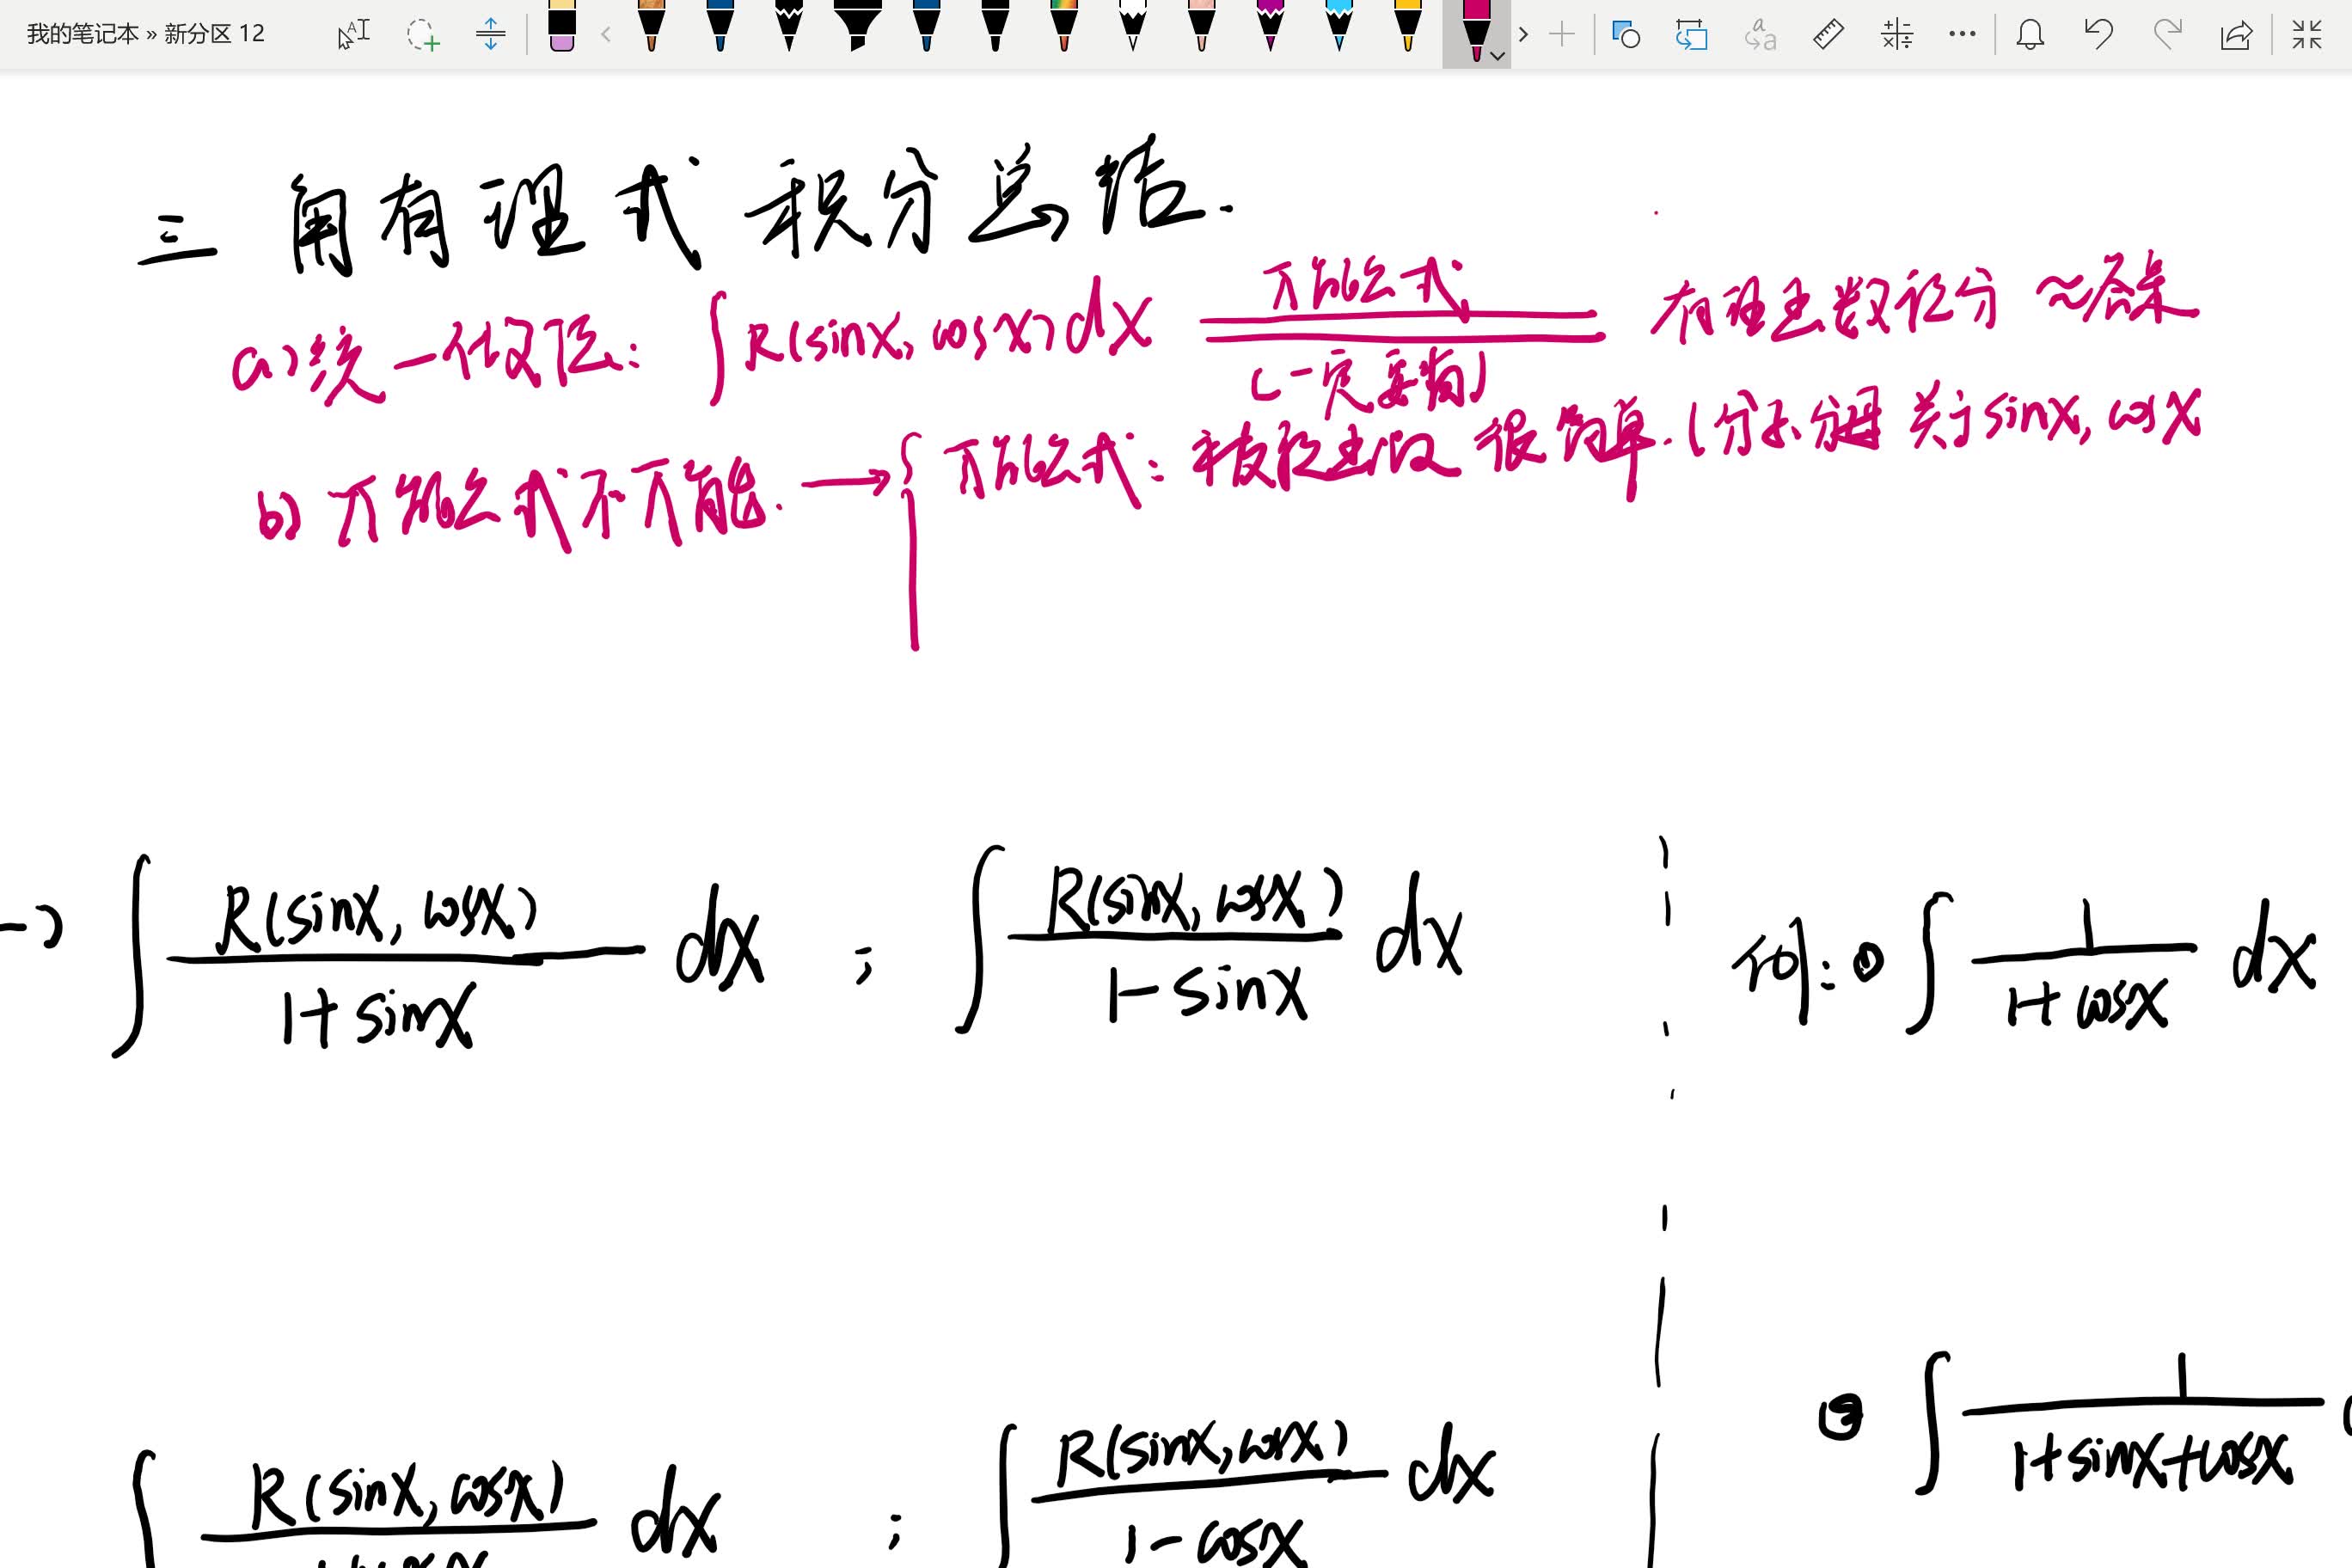 我的笔记本 » 新分区 12
三角有理式积分总结.
a) 统一代换法: ∫R(sinx, cosx)dx 万能公式 (一定要换) 有理函数积分 ≈
b) 万能公式不万能. → { 万能公式: 很简单.(分子、分母 关于 sinx, cosx
→ ∫ R(sinx, cosx) / 1+sinx dx ; ∫ R(sinx, cosx) / 1-sinx dx
例: ① ∫ 1 / 1+cosx dx
∫ R(sinx, cosx) / dx ; ∫ R(sinx, cosx) / 1-cosx dx
② ∫ 1 / 1+sinx+cosx